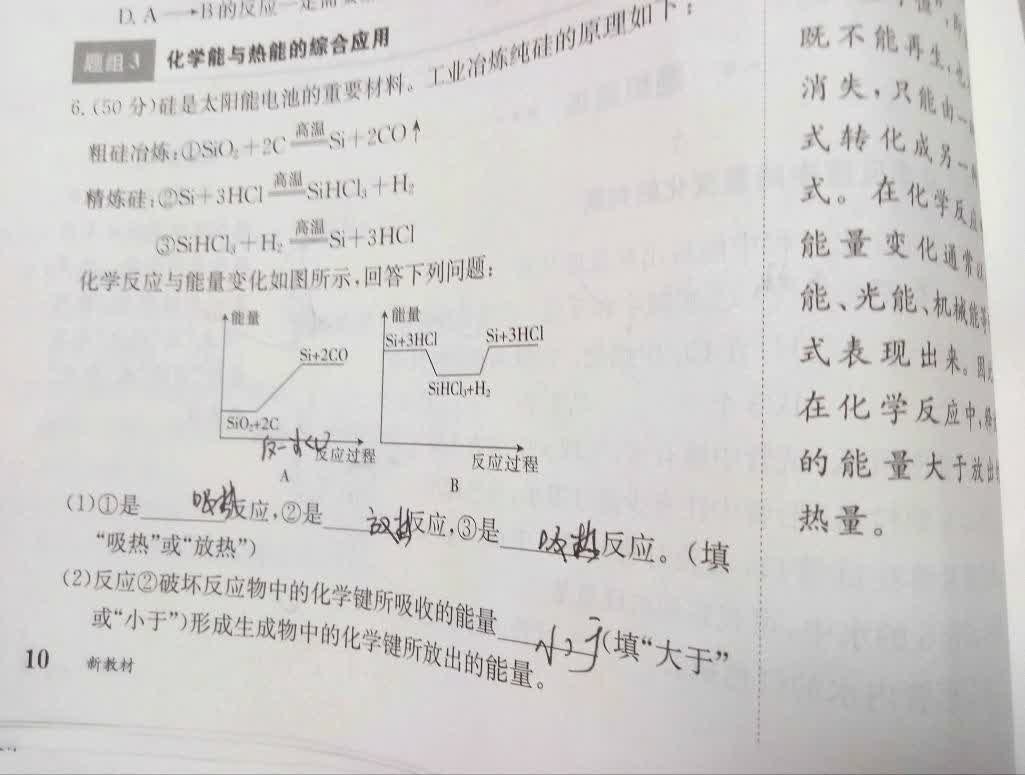 D. A→B的反应一定需要
题组3 化学能与热能的综合应用
6.(50分)硅是太阳能电池的重要材料。工业冶炼纯硅的原理如下:
粗硅冶炼:①SiO₂+2C 高温 Si+2CO↑
精炼硅:②Si+3HCl 高温 SiHCl₃+H₂
③SiHCl₃+H₂ 高温 Si+3HCl
化学反应与能量变化如图所示,回答下列问题:
能量
Si+2CO
SiO₂+2C
反应过程
A
能量
Si+3HCl
Si+3HCl
SiHCl₃+H₂
反应过程
B
(1)①是 吸热 反应,②是 放热 反应,③是 吸热 反应。(填
“吸热”或“放热”)
(2)反应②破坏反应物中的化学键所吸收的能量 小于 (填“大于”
或“小于”)形成生成物中的化学键所放出的能量。
10 新教材
既不能再生,也
消失,只能由一
式转化成另一
式。在化学反应
能量变化通常以
能、光能、机械能等
式表现出来。因
在化学反应中,
的能量大于放出
热量。